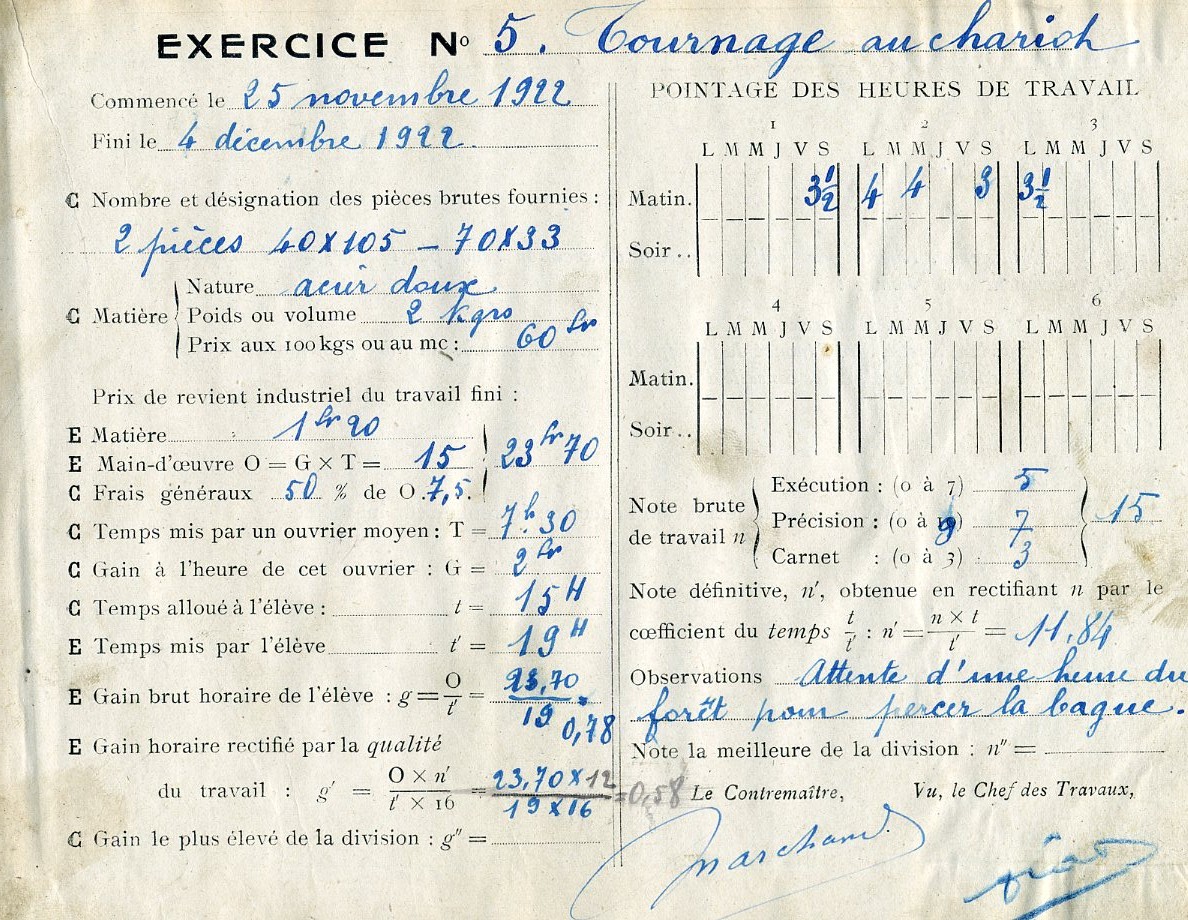 EXERCICE No 5. Tournage au chariot
Commencé le 25 novembre 1922
Fini le 4 décembre 1922.
C Nombre et désignation des pièces brutes fournies :
2 pièces 40x105 – 70x33
C Matière
Nature acier doux
Poids ou volume 2 kgrs
Prix aux 100kgs ou au mc : 60 fr
Prix de revient industriel du travail fini :
E Matière 1 fr 20
E Main-d'œuvre O = G × T = 15
C Frais généraux 50 % de O. 7,5.
23 fr 70
C Temps mis par un ouvrier moyen : T = 7h. 30
C Gain à l'heure de cet ouvrier : G = 2 fr
C Temps alloué à l'élève : t = 15 H
E Temps mis par l'élève t' = 19 H
E Gain brut horaire de l'élève : g = O / t' = 23,70 / 19 = 0,78
E Gain horaire rectifié par la qualité
du travail : g' = O × n' / t' × 16 = 23,70 x 12 / 19 x 16 = 0,58
C Gain le plus élevé de la division : g'' =
POINTAGE DES HEURES DE TRAVAIL
1 2 3
L M M J V S L M M J V S L M M J V S
Matin. 3½ 4 4 3 3½
Soir ..
4 5 6
L M M J V S L M M J V S L M M J V S
Matin.
Soir ..
Note brute
de travail n
Exécution : (0 à 7) 5
Précision : (0 à 9) 7
Carnet : (0 à 3) 3
15
Note définitive, n', obtenue en rectifiant n par le
cœfficient du temps t / t' : n' = n × t / t' = 11,84
Observations Attente d'une heure du
forêt pour percer la bague.
Note la meilleure de la division : n'' =
Le Contremaître, Vu, le Chef des Travaux,
Marchand